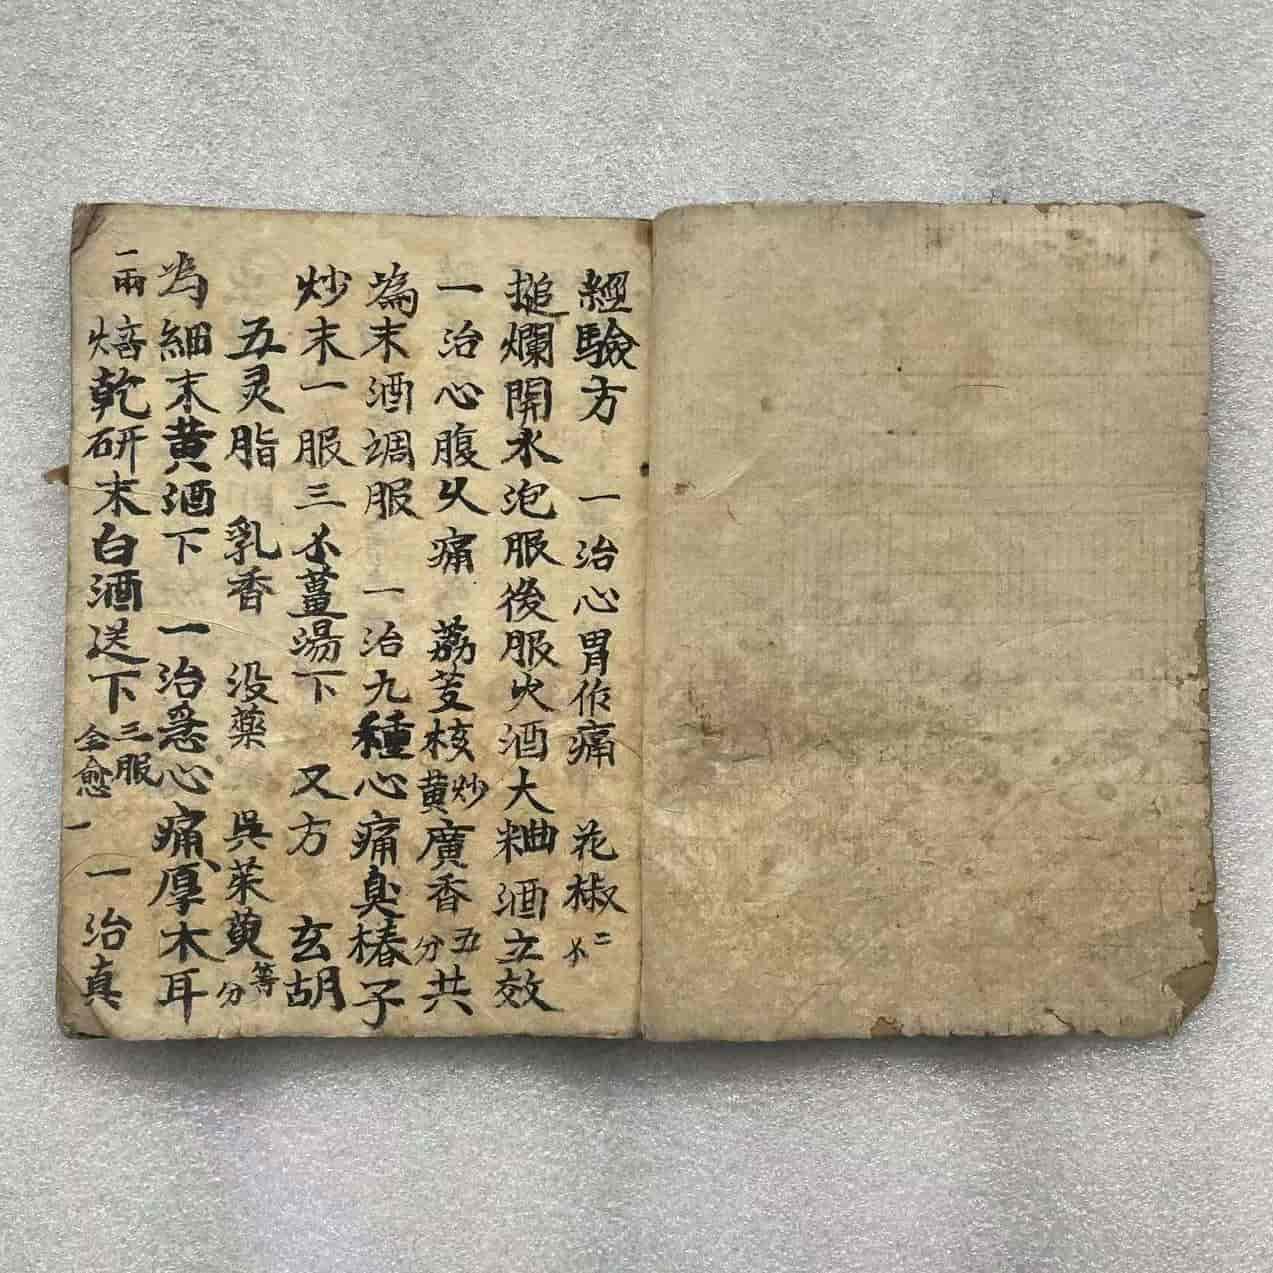 經驗方 一治心胃作痛 花椒二钱
搥爛開水泡服後服火酒大粬酒立效
一治心腹久痛 荔芰核炒黄廣香五分共
為末酒调服 一治九種心痛臭椿子
炒末一服三钱薑湯下 又方 玄胡
五灵脂 乳香 没藥 吳茱萸等分
為細末黄酒下 一治急心痛厚木耳
一兩焙乾研末白酒送下三服全愈 一治真